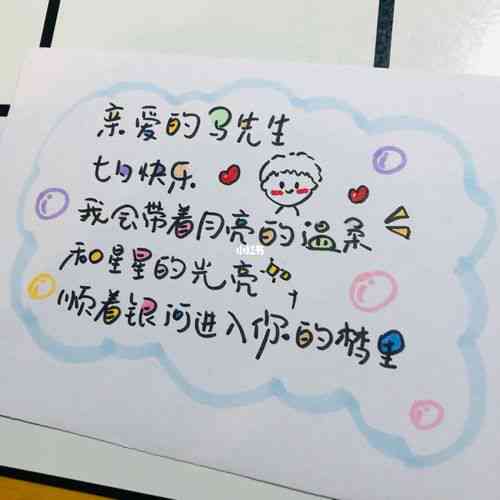 亲爱的马先生
七夕快乐
我会带着月亮的温柔
小红书
和星星的光亮
顺着银河进入你的梦里